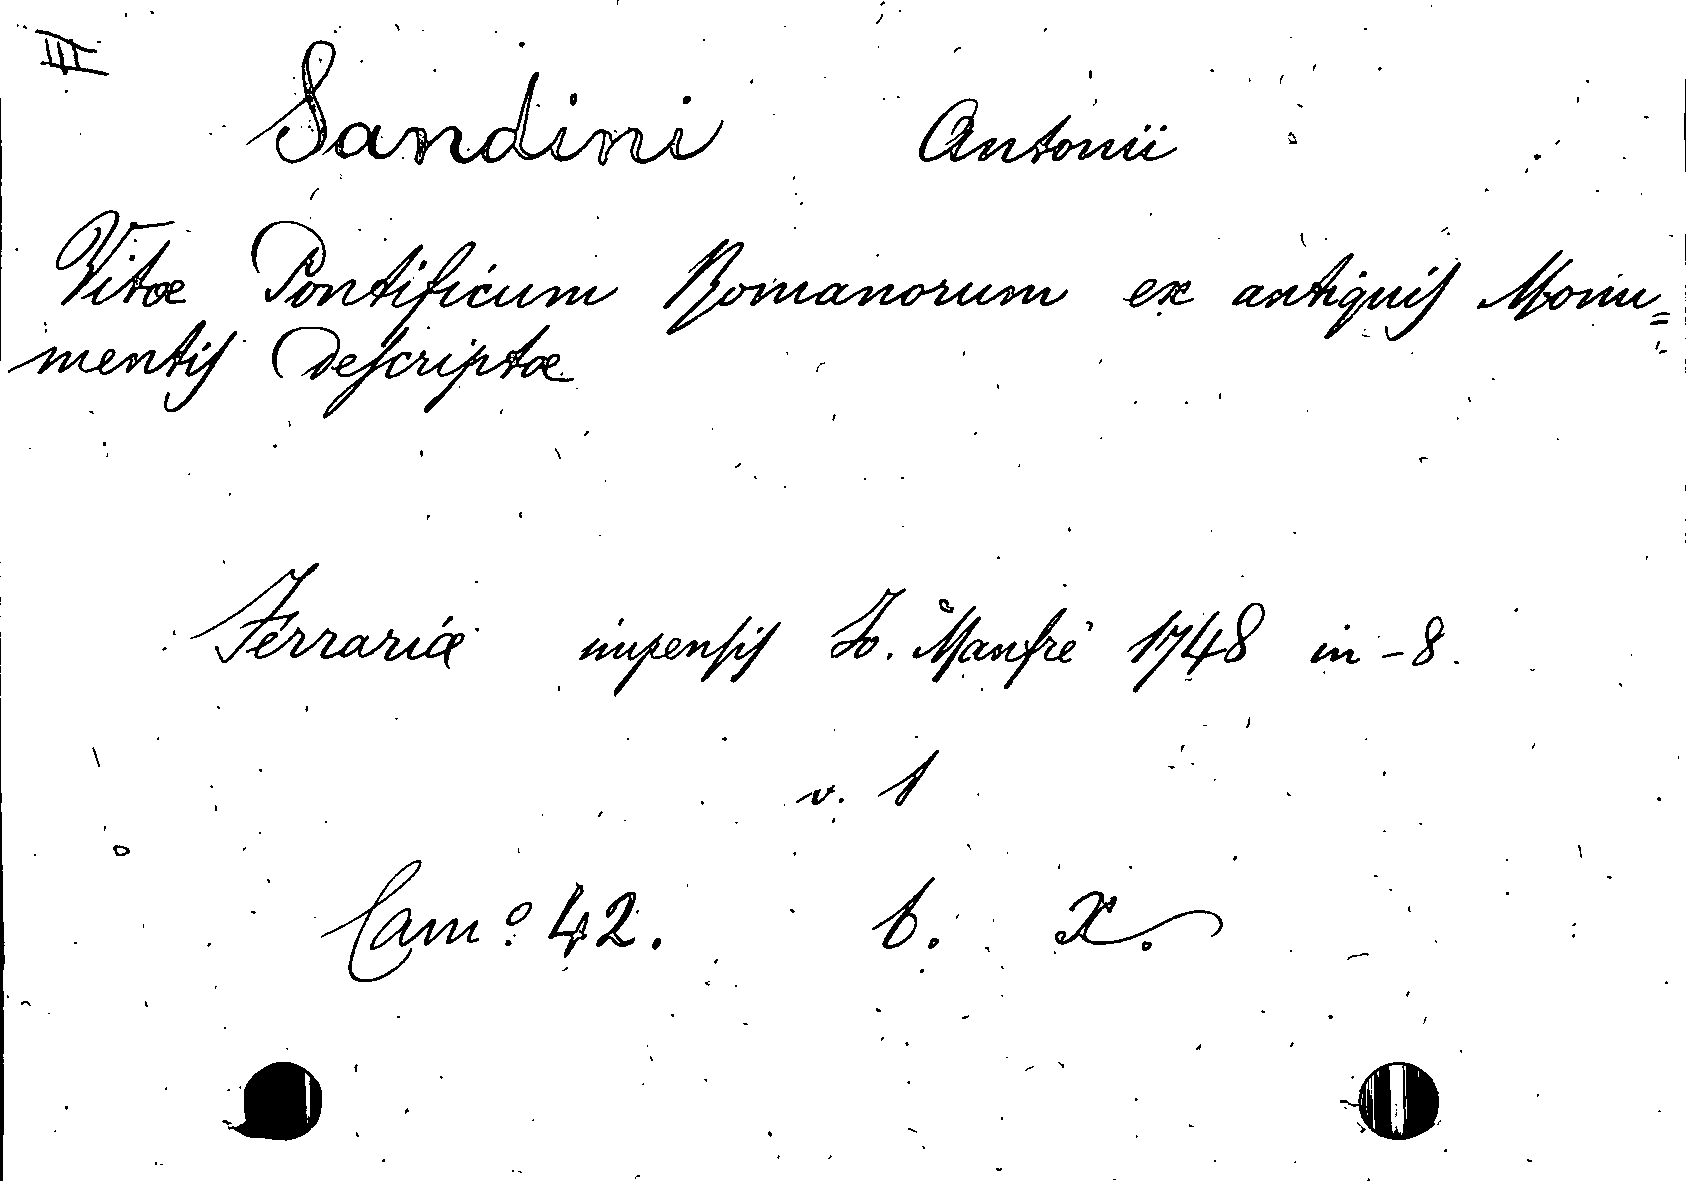 III
Sandini Antonii
Vitæ Pontificum Romanorum ex antiquis Monu=
mentis Descriptæ
Ferrariæ impensis Jo. Manfrè 1748 in-8.
v. 1
Cam.º 42. b. X.